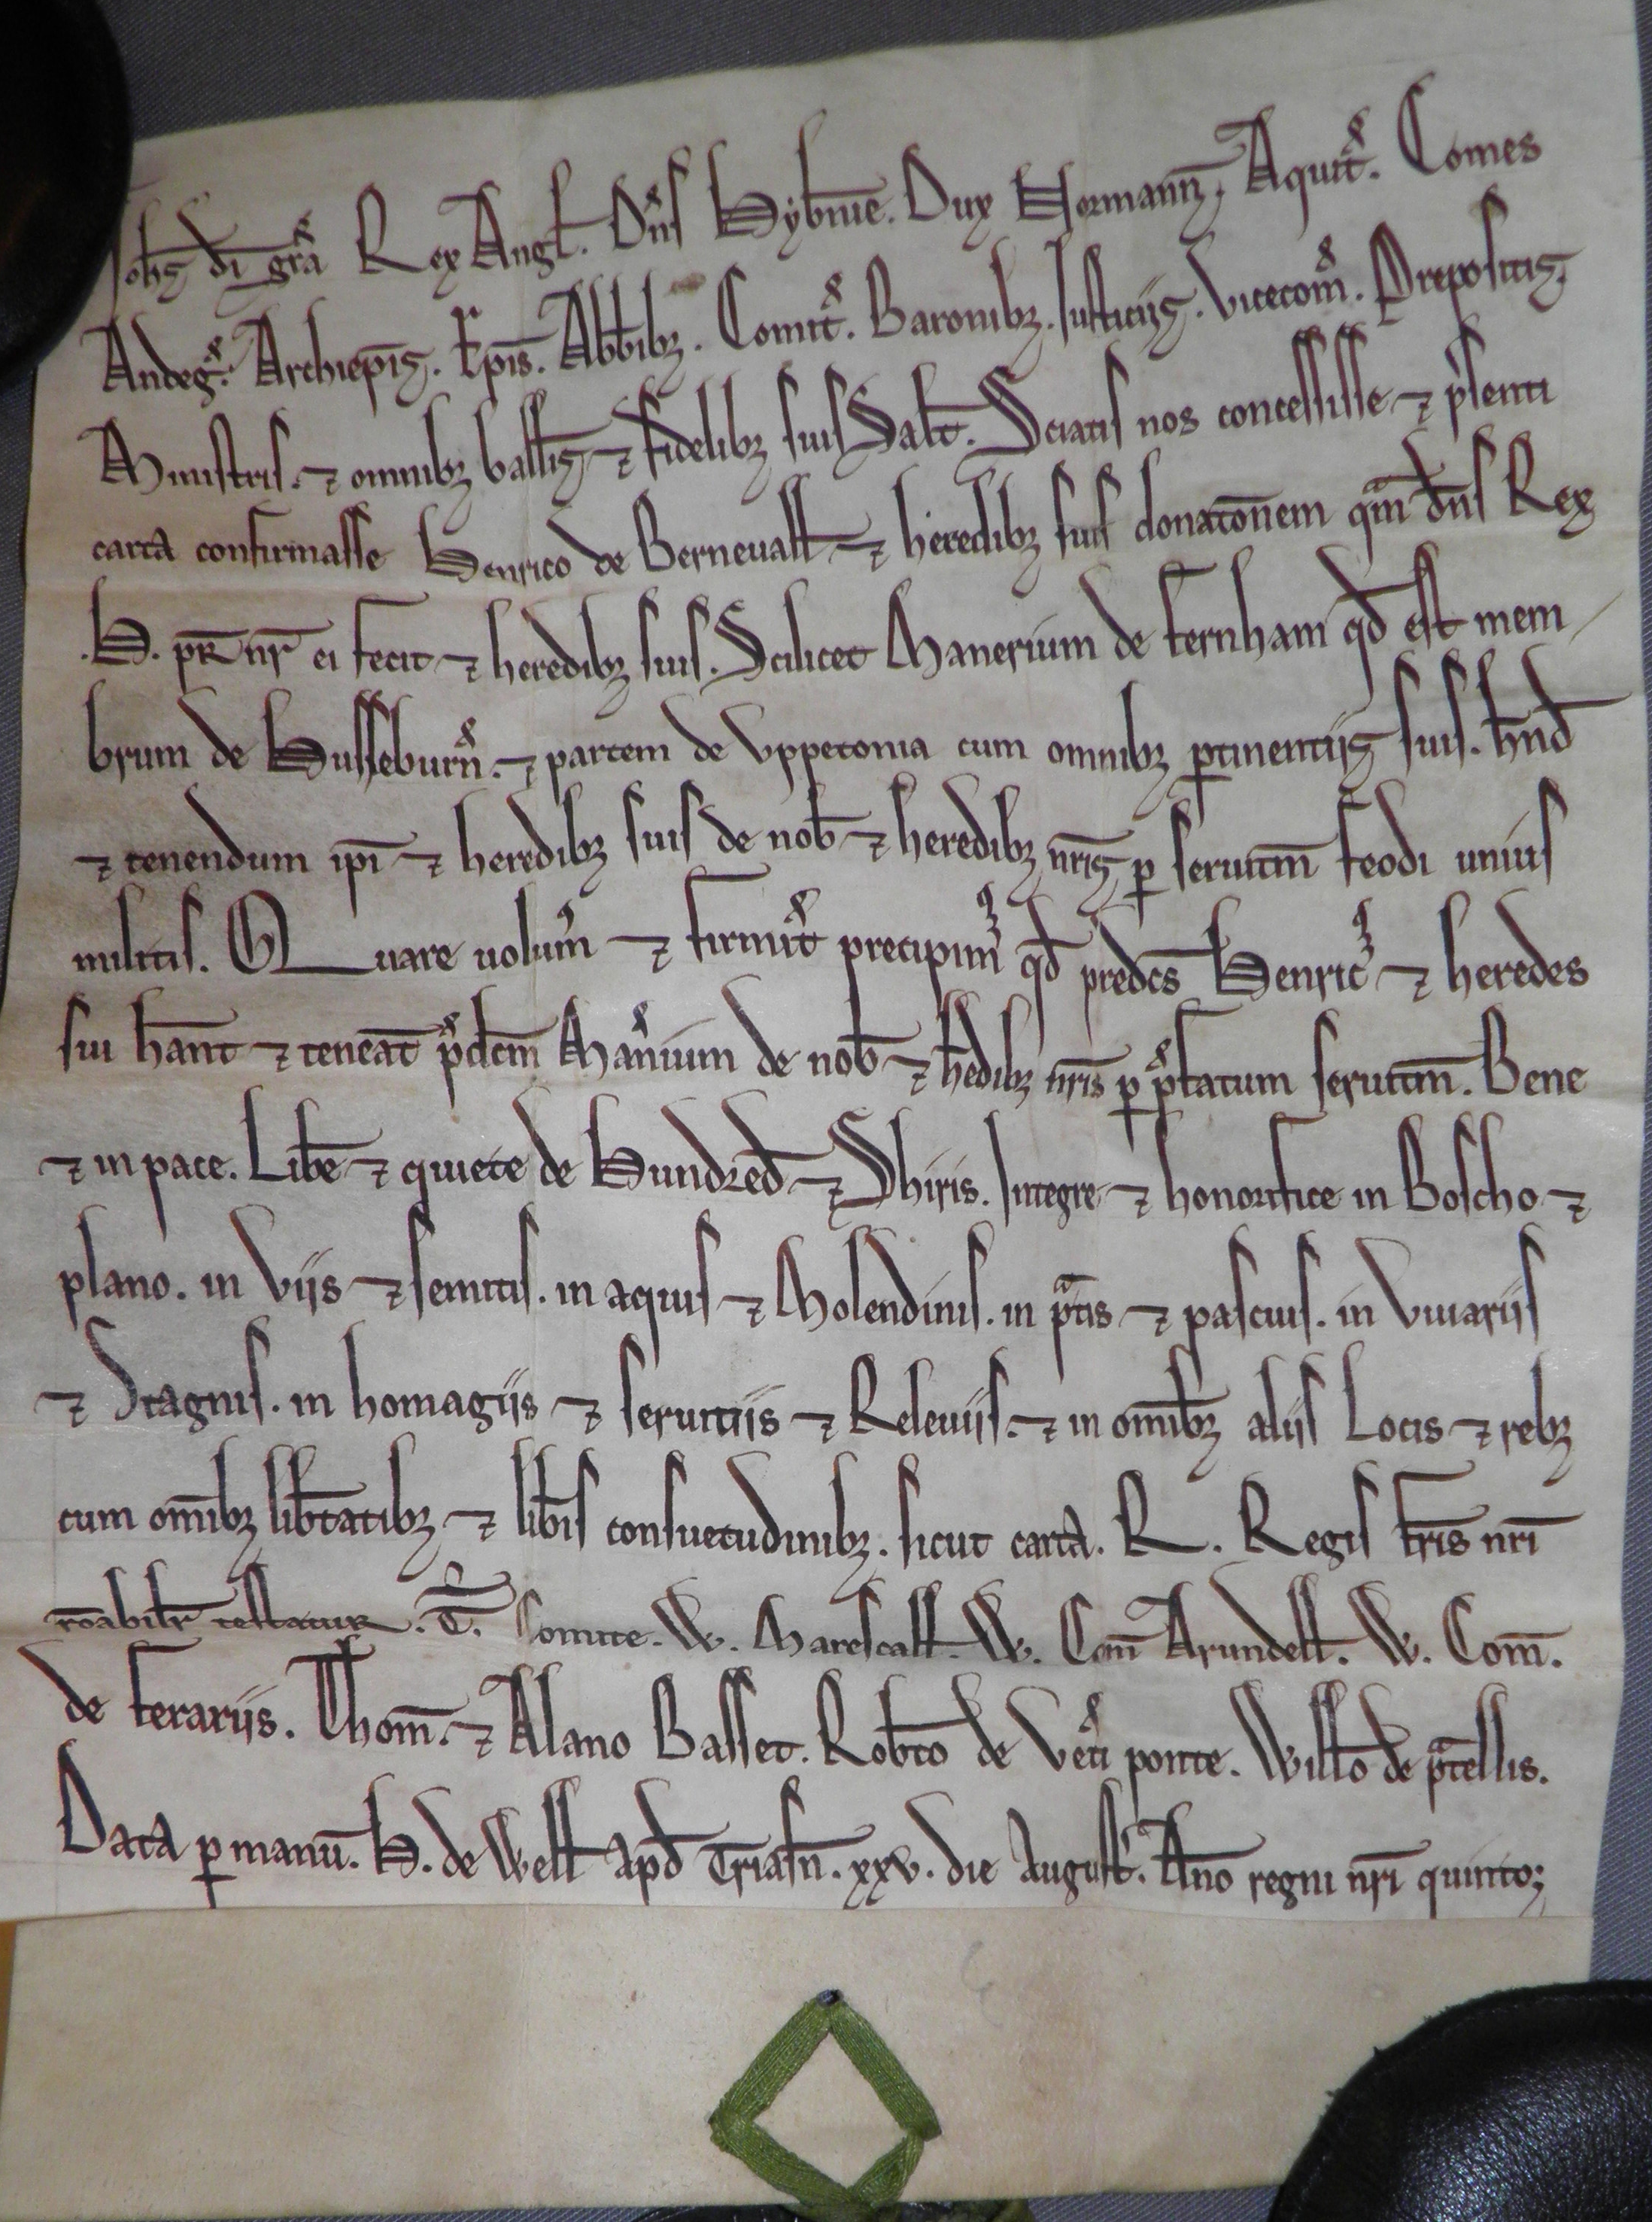 Joh̄s dī gr̄a Rex Angl̄. Dn̄s Hyb̄nie. Dux Normann̄, Aquit̄. Comes
Andeḡ. Archiep̄is. Ep̄is. Abb̄ibꝫ. Comit̄. Baronibꝫ. Justiciis. Vicecom̄. Prepositis.
Ministris. ⁊ omnibꝫ ball̄is ⁊ fidelibꝫ suis Sal̄t. Sciatis nos concessisse ⁊ p̄senti
carta confirmasse Henrico de Bernevall̄ ⁊ heredibꝫ suis donatōnem qͣm dn̄s Rex
.H. pr̄ nr̄ ei fecit ⁊ heredibꝫ suis. Scilicet Manerium de fernham qd̄ est mem
brum de Husseburn̄. ⁊ partem de Uppetonia cum omnibꝫ ꝑtinentiis suis. hn̄d
⁊ tenendum ip̄i ⁊ heredibꝫ suis de nob̄ ⁊ heredibꝫ nr̄is ꝑ servitm̄ feodi unius
militis. Quare volum̄ ⁊ firmit̄ precipim᷒ qd̄ predc̄s Henric᷒ ⁊ heredes
sui hānt ⁊ teneāt p̄dcm̄ Man̄ium de nob̄ ⁊ h̄edibꝫ nr̄is ꝑ p̄fatum servitm̄. Bene
⁊ in pace. Lib̄e ⁊ quiete de Hundred̄ ⁊ Shiris. Integre ⁊ honorifice in Boscho ⁊
plano. in Viis ⁊ semitis. in aquis ⁊ Molendinis. in pͣtis ⁊ pascuis. in Vivariis
⁊ Stagnis. in homagiis ⁊ servitiis ⁊ Releviis. ⁊ in om̄ibꝫ aliis Locis ⁊ rebꝫ
cum om̄ibꝫ lib̄tatibꝫ ⁊ lib̄is consuetudinibꝫ. sicut carta. R. Regis fr̄is nr̄i
rōabilr̄ testatur. T̄. Comite. W. Marescall̄. W. Com̄ Arundell̄. W. Com̄.
de ferariis. Thom̄. ⁊ Alano Basset. Rob̄to de Vet̄i ponte. Will̄o de pͣtellis.
Data ꝑ manū. H. de Well̄ apd̄ Triafn̄. xxv. die August̄. An̄o regni nr̄i quinto;